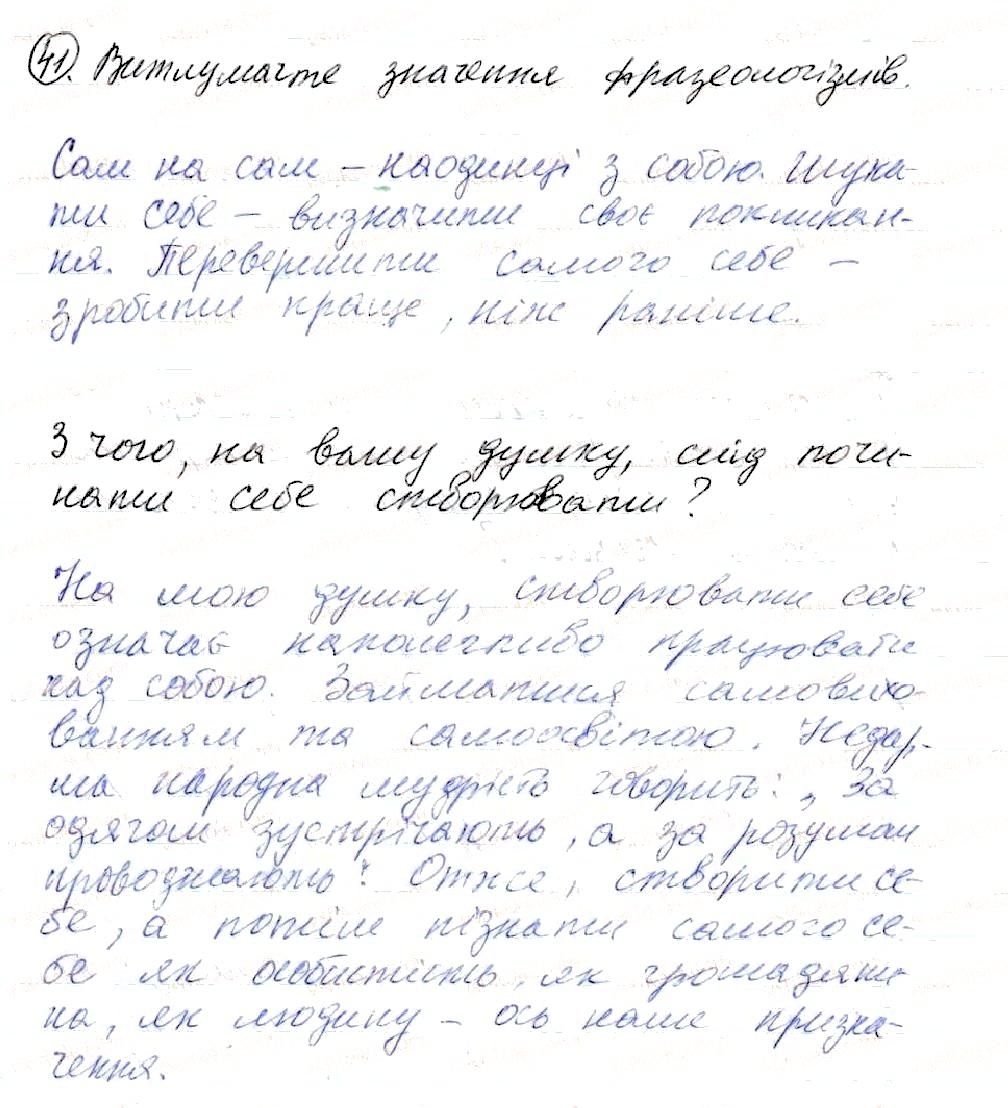 41. Витлумачте значення фразеологізмів.
Сам на сам – наодинці з собою. Шука-
ти себе – визначити своє покликан-
ня. Перевершити самого себе –
зробити краще, ніж раніше.
З чого, на вашу думку, слід почи-
нати себе створювати?
На мою думку, створювати себе
означає наполегливо працювати
над собою. Займатися самовихо-
ванням та самоосвітою. Недар-
ма народна мудрість говорить: „За
одягом зустрічають, а за розумом
проводжають". Отже, створити се-
бе, а потім пізнати самого се-
бе як особистість, як громадяни-
на, як людину – ось наше призна-
чення.